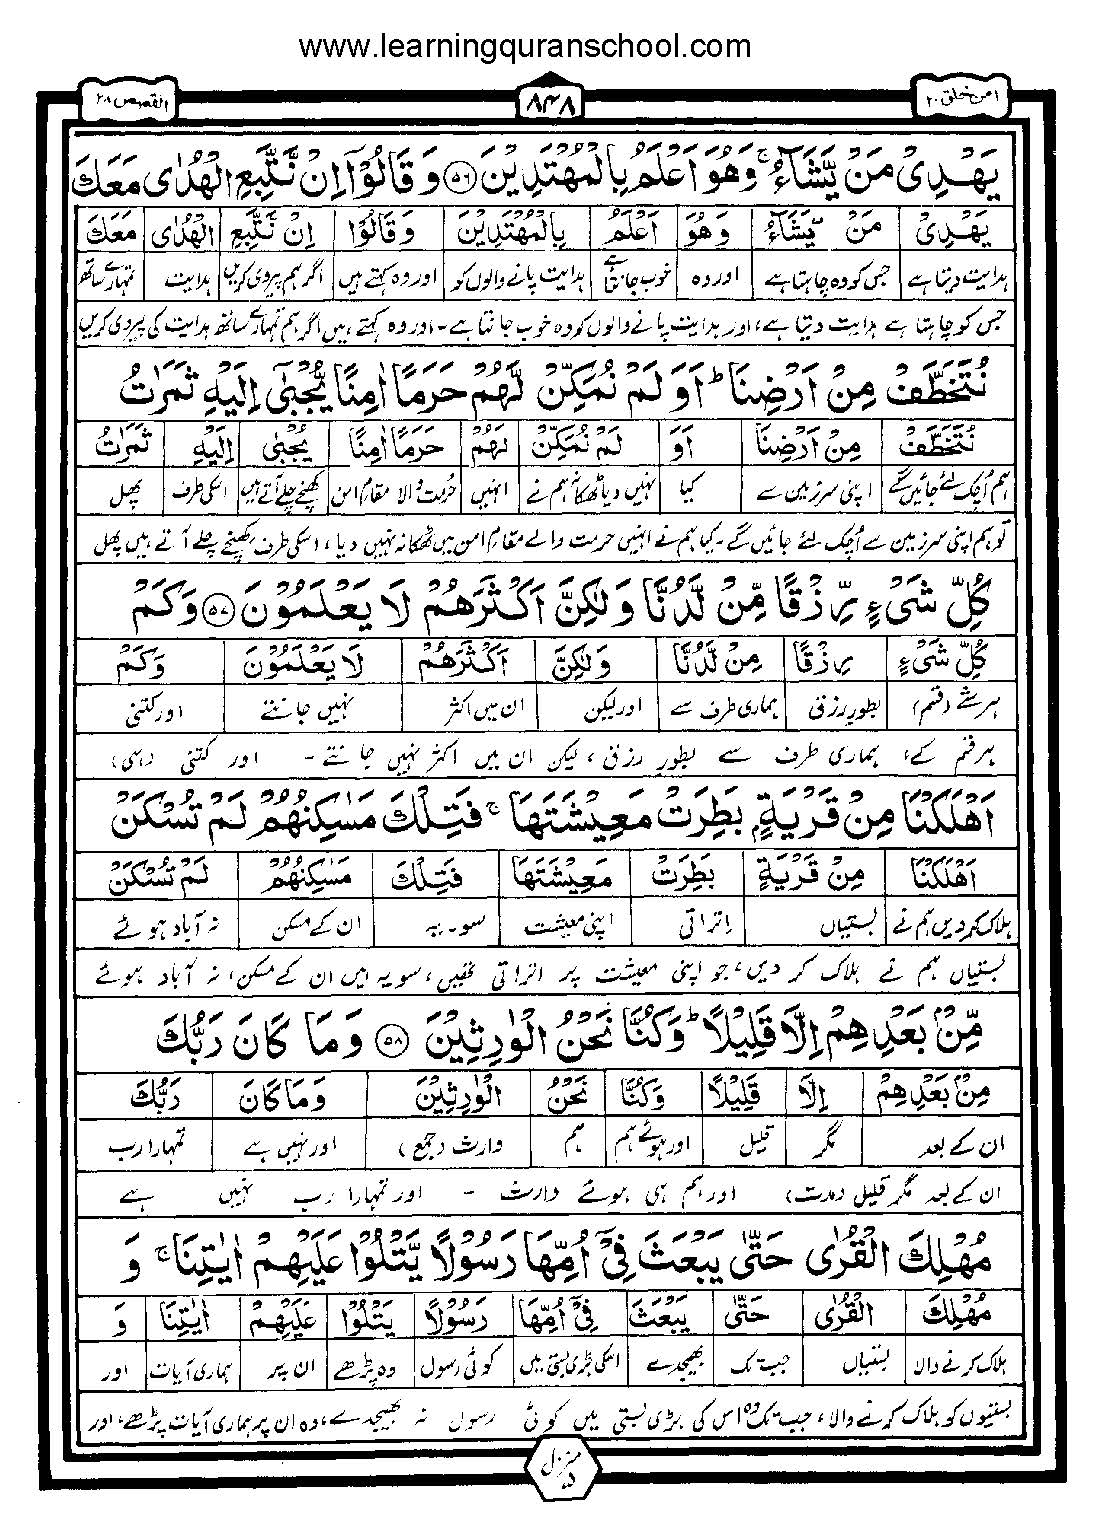 www.learningquranschool.com
امن خلق ۲۰ ۸۴۸ القصص ۲۸
يَهْدِىْ مَنْ يَّشَآءُ ۚ وَهُوَ اَعْلَمُ بِالْمُهْتَدِيْنَ ﴿۵۶﴾ وَقَالُوْٓا اِنْ نَّتَّبِعِ الْهُدٰى مَعَكَ
يَهْدِىْ مَنْ يَّشَآءُ وَهُوَ اَعْلَمُ بِالْمُهْتَدِيْنَ وَقَالُوْا اِنْ نَّتَّبِعِ الْهُدٰى مَعَكَ
ہدایت دیتا ہے جس کو وہ چاہتا ہے اور وہ خوب جانتا ہے ہدایت پانے والوں کو اور وہ کہتے ہیں اگر ہم پیروی کریں ہدایت تمہارے ساتھ
جس کو چاہتا ہے ہدایت دیتا ہے، اور ہدایت پانے والوں کو وہ خوب جانتا ہے۔ اور وہ کہتے ہیں اگر ہم تمہارے ساتھ ہدایت کی پیروی کریں
نُتَخَطَّفْ مِنْ اَرْضِنَا ؕ اَوَلَمْ نُمَكِّنْ لَّهُمْ حَرَمًا اٰمِنًا يُّجْبٰٓى اِلَيْهِ ثَمَرٰتُ
نُتَخَطَّفْ مِنْ اَرْضِنَا اَوَ لَمْ نُمَكِّنْ لَهُمْ حَرَمًا اٰمِنًا يُجْبٰى اِلَيْهِ ثَمَرٰتُ
ہم اُچک لئے جائیں گے اپنی سرزمین سے کیا نہیں دیا ٹھکانہ ہم نے انہیں حرمت والا مقامِ امن کھنچے چلے آتے ہیں اسکی طرف پھل
تو ہم اپنی سرزمین سے اُچک لئے جائیں گے۔ کیا ہم نے انہیں حرمت والے مقامِ امن میں ٹھکانہ نہیں دیا، اسکی طرف کھنچے چلے آتے ہیں پھل
كُلِّ شَىْءٍ رِّزْقًا مِّنْ لَّدُنَّا وَلٰكِنَّ اَكْثَرَهُمْ لَا يَعْلَمُوْنَ ﴿۵۷﴾ وَكَمْ
كُلِّ شَىْءٍ رِزْقًا مِنْ لَّدُنَّا وَلٰكِنَّ اَكْثَرَهُمْ لَا يَعْلَمُوْنَ وَكَمْ
ہر شے (قسم) بطور رزق ہماری طرف سے اور لیکن ان میں اکثر نہیں جانتے اور کتنی
ہر قسم کے، ہماری طرف سے بطور رزق، لیکن ان میں اکثر نہیں جانتے۔ اور کتنی (ہی)
اَهْلَكْنَا مِنْ قَرْيَةٍۭ بَطِرَتْ مَعِيْشَتَهَا ۚ فَتِلْكَ مَسٰكِنُهُمْ لَمْ تُسْكَنْ
اَهْلَكْنَا مِنْ قَرْيَةٍ بَطِرَتْ مَعِيْشَتَهَا فَتِلْكَ مَسٰكِنُهُمْ لَمْ تُسْكَنْ
ہلاک کر دیں ہم نے بستیاں اِتراتی اپنی معیشت سو۔ یہ ان کے مسکن نہ آباد ہوئے
بستیاں ہم نے ہلاک کر دیں، جو اپنی معیشت پر اتراتی تھیں، سو یہ ہیں ان کے مسکن، نہ آباد ہوئے
مِّنْۢ بَعْدِهِمْ اِلَّا قَلِيْلًا ؕ وَكُنَّا نَحْنُ الْوٰرِثِيْنَ ﴿۵۸﴾ وَمَا كَانَ رَبُّكَ
مِنْۢ بَعْدِهِمْ اِلَّا قَلِيْلًا وَكُنَّا نَحْنُ الْوٰرِثِيْنَ وَمَا كَانَ رَبُّكَ
ان کے بعد مگر قلیل اور ہوئے ہم ہم وارث (جمع) اور نہیں ہے تمہارا رب
ان کے بعد مگر قلیل (مدت) اور ہم ہی ہوئے وارث۔ اور تمہارا رب نہیں ہے
مُهْلِكَ الْقُرٰى حَتّٰى يَبْعَثَ فِىْٓ اُمِّهَا رَسُوْلًا يَّتْلُوْا عَلَيْهِمْ اٰيٰتِنَا ۚ وَ
مُهْلِكَ الْقُرٰى حَتّٰى يَبْعَثَ فِىْٓ اُمِّهَا رَسُوْلًا يَتْلُوْا عَلَيْهِمْ اٰيٰتِنَا وَ
ہلاک کرنے والا بستیاں جب تک بھیجدے اسکی بڑی بستی میں کوئی رسول وہ پڑھے ان پر ہماری آیات اور
بستیوں کو ہلاک کرنے والا، جب تک وہ اس کی بڑی بستی میں کوئی رسول نہ بھیجدے، وہ ان پر ہماری آیات پڑھے، اور
منزل ۵